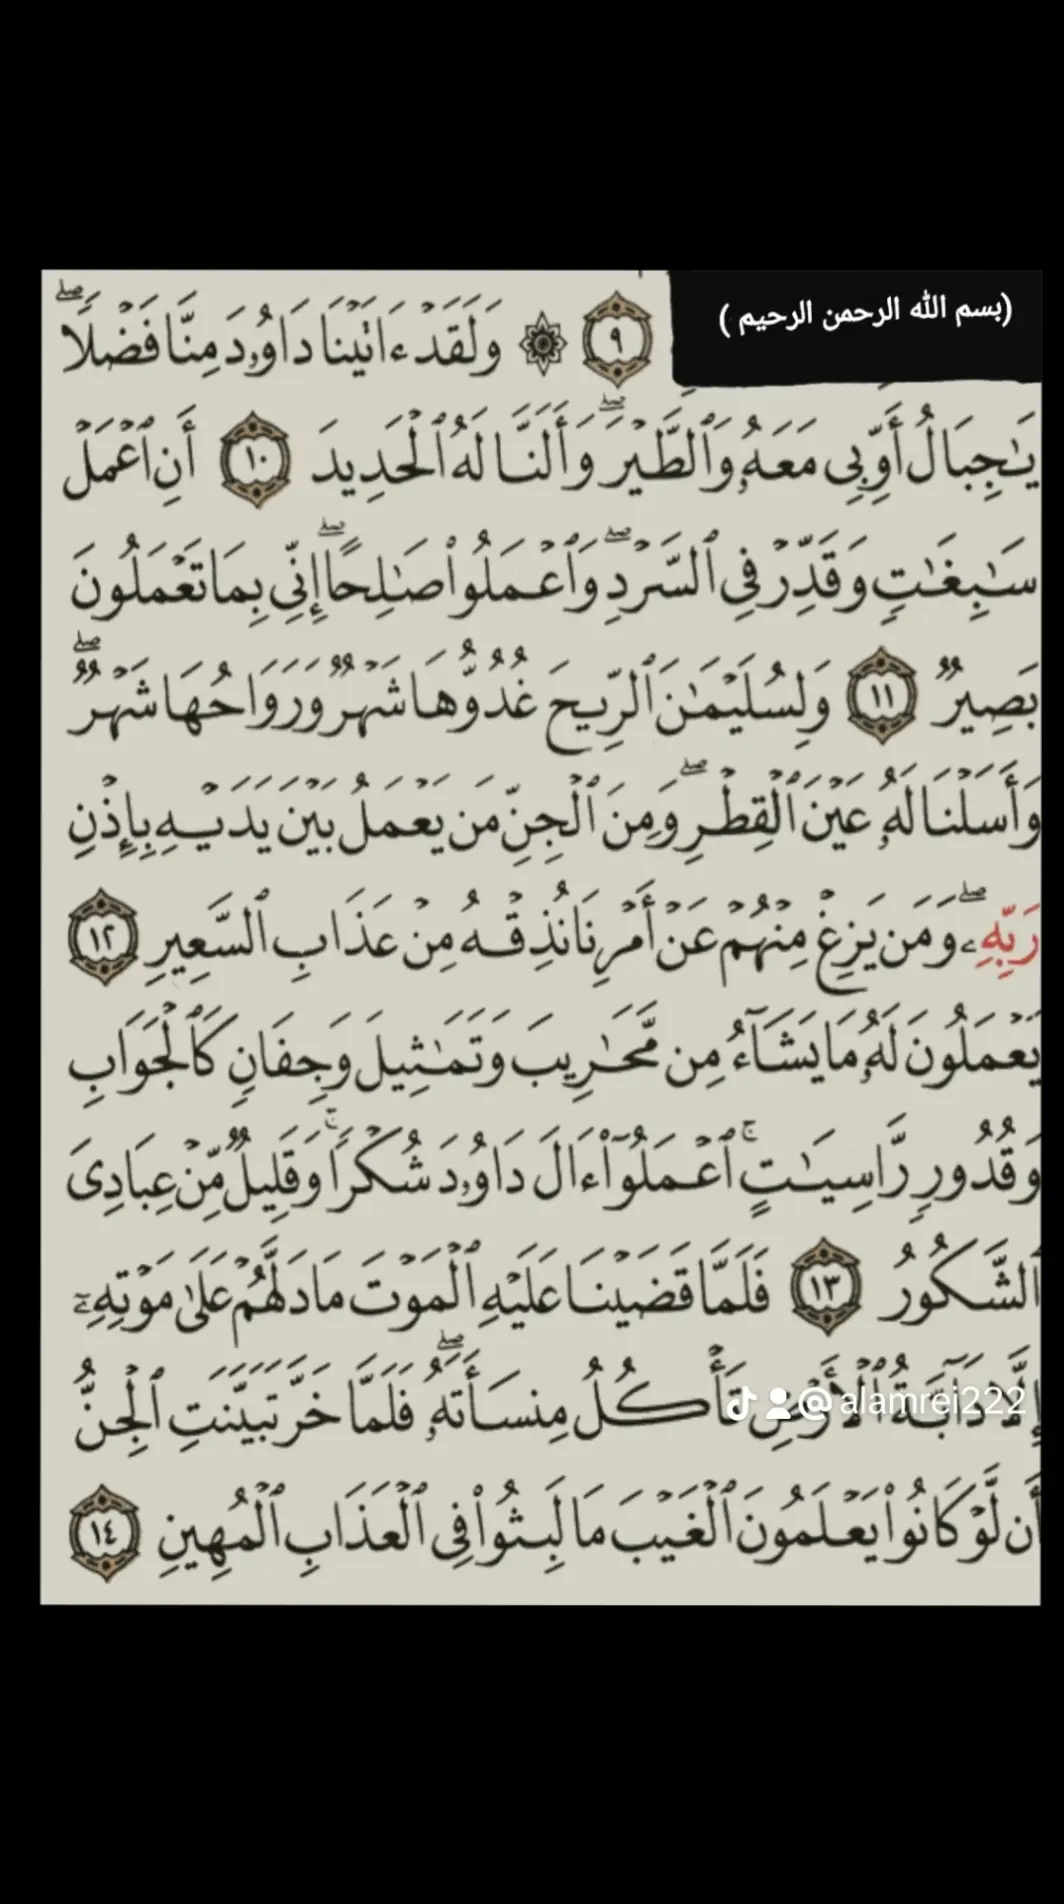 (بسم الله الرحمن الرحيم )
٩ ۞ وَلَقَدْ ءَاتَيْنَا دَاوُۥدَ مِنَّا فَضْلًاۖ
يَٰجِبَالُ أَوِّبِى مَعَهُۥ وَٱلطَّيْرَۖ وَأَلَنَّا لَهُ ٱلْحَدِيدَ ١٠ أَنِ ٱعْمَلْ
سَٰبِغَٰتٍ وَقَدِّرْ فِى ٱلسَّرْدِۖ وَٱعْمَلُوا۟ صَٰلِحًاۖ إِنِّى بِمَا تَعْمَلُونَ
بَصِيرٌ ١١ وَلِسُلَيْمَٰنَ ٱلرِّيحَ غُدُوُّهَا شَهْرٌ وَرَوَاحُهَا شَهْرٌۖ
وَأَسَلْنَا لَهُۥ عَيْنَ ٱلْقِطْرِۖ وَمِنَ ٱلْجِنِّ مَن يَعْمَلُ بَيْنَ يَدَيْهِ بِإِذْنِ
رَبِّهِۦۖ وَمَن يَزِغْ مِنْهُمْ عَنْ أَمْرِنَا نُذِقْهُ مِنْ عَذَابِ ٱلسَّعِيرِ ١٢
يَعْمَلُونَ لَهُۥ مَا يَشَآءُ مِن مَّحَٰرِيبَ وَتَمَٰثِيلَ وَجِفَانٍ كَٱلْجَوَابِ
وَقُدُورٍ رَّاسِيَٰتٍۚ ٱعْمَلُوٓا۟ ءَالَ دَاوُۥدَ شُكْرًاۚ وَقَلِيلٌ مِّنْ عِبَادِىَ
ٱلشَّكُورُ ١٣ فَلَمَّا قَضَيْنَا عَلَيْهِ ٱلْمَوْتَ مَا دَلَّهُمْ عَلَىٰ مَوْتِهِۦٓ
إِلَّا دَآبَّةُ ٱلْأَرْضِ تَأْكُلُ مِنسَأَتَهُۥۖ فَلَمَّا خَرَّ تَبَيَّنَتِ ٱلْجِنُّ
@alamrei222
أَن لَّوْ كَانُوا۟ يَعْلَمُونَ ٱلْغَيْبَ مَا لَبِثُوا۟ فِى ٱلْعَذَابِ ٱلْمُهِينِ ١٤